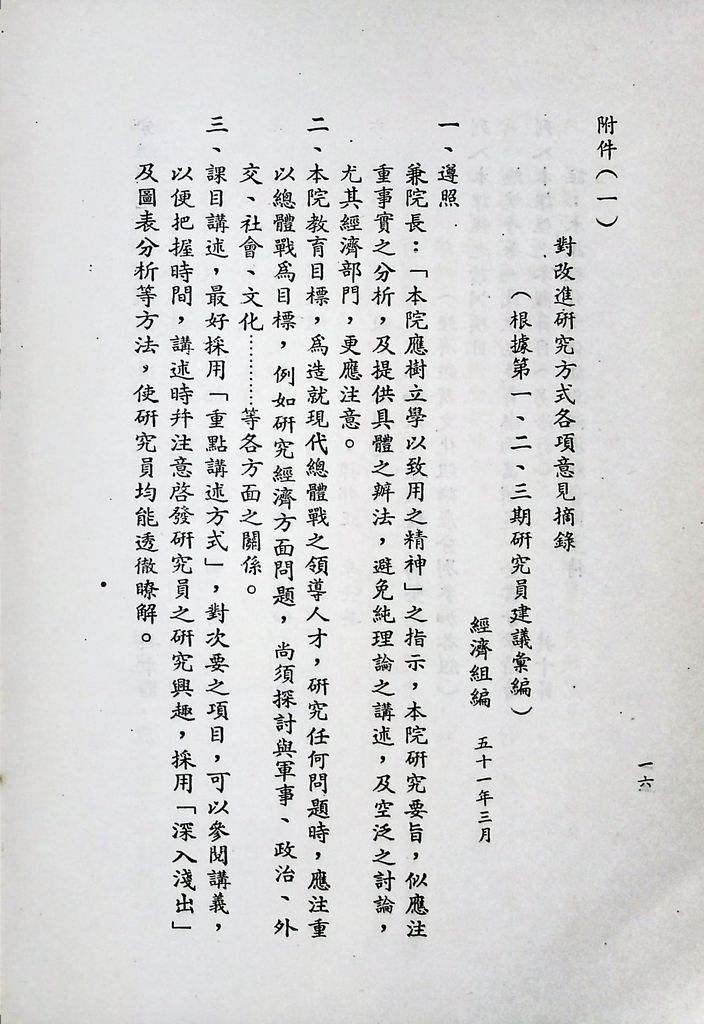 附件（一）
對改進研究方式各項意見摘錄
（根據第一、二、三期研究員建議彙編）
經濟組編　五十一年三月
一、遵照
兼院長：「本院應樹立學以致用之精神」之指示，本院研究要旨，似應注
重事實之分析，及提供具體之辦法，避免純理論之講述，及空泛之討論，
尤其經濟部門，更應注意。
二、本院教育目標，為造就現代總體戰之領導人才，研究任何問題時，應注重
以總體戰為目標，例如研究經濟方面問題，尚須探討與軍事、政治、外
交、社會、文化…………等各方面之關係。
三、課目講述，最好採用「重點講述方式」，對次要之項目，可以參閱講義，
以便把握時間，講述時幷注意啓發研究員之研究興趣，採用「深入淺出」
及圖表分析等方法，使研究員均能透徹瞭解。
一六